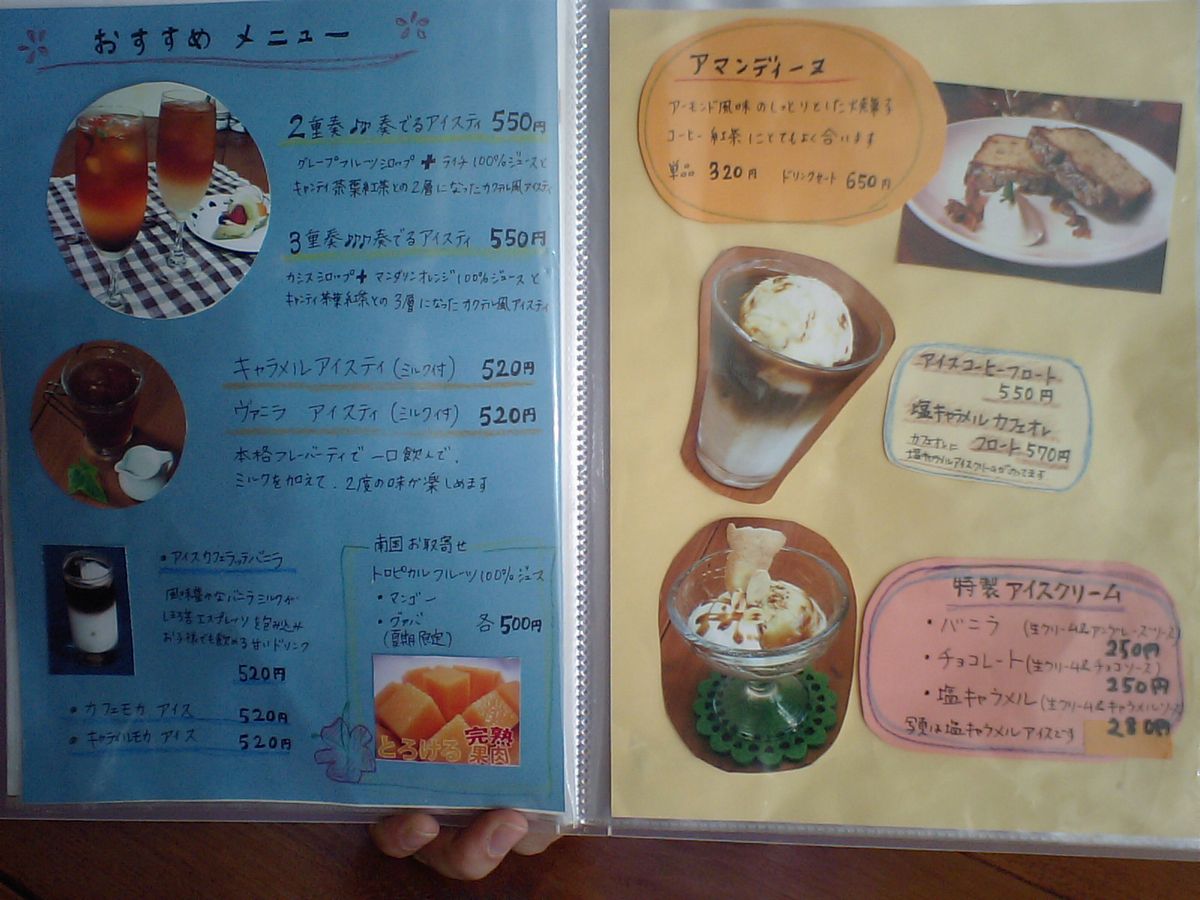 おすすめ メニュー
2重奏♪♪奏でるアイスティ 550円
グレープフルーツシロップ + ライチ100%ジュースと
キャンディ茶葉紅茶との2層になったカクテル風アイスティ
3重奏♪♪♪奏でるアイスティ 550円
カシスシロップ + マンダリンオレンジ100%ジュースと
キャンディ茶葉紅茶との3層になったカクテル風アイスティ
キャラメル アイスティ (ミルク付) 520円
ヴァニラ アイスティ (ミルク付) 520円
本格フレーバーティで一口飲んで、
ミルクを加えて、2度の味が楽しめます
・アイスカフェラッテバニラ
風味豊かなバニラミルクが
ほろ苦エスプレッソを包み込み
お子様でも飲める甘いドリンク
520円
・カフェモカ アイス 520円
・キャラメルモカ アイス 520円
南国お取寄せ
トロピカルフルーツ100%ジュース
・マンゴー
・グァバ 各500円
(夏期限定)
とろける 完熟果肉
アマンディーヌ
アーモンド風味のしっとりとした焼菓子
コーヒー 紅茶にとてもよく合います
単品 320円 ドリンクセット 650円
アイスコーヒーフロート
550円
塩キャラメル カフェオレ
フロート 570円
カフェオレに
塩キャラメルアイスクリームがのってます
特製 アイスクリーム
・バニラ (生クリーム&アングレーズソース)
250円
・チョコレート (生クリーム&チョコソース)
250円
・塩キャラメル (生クリーム&キャラメルソース)
写真は塩キャラメルアイスです 280円